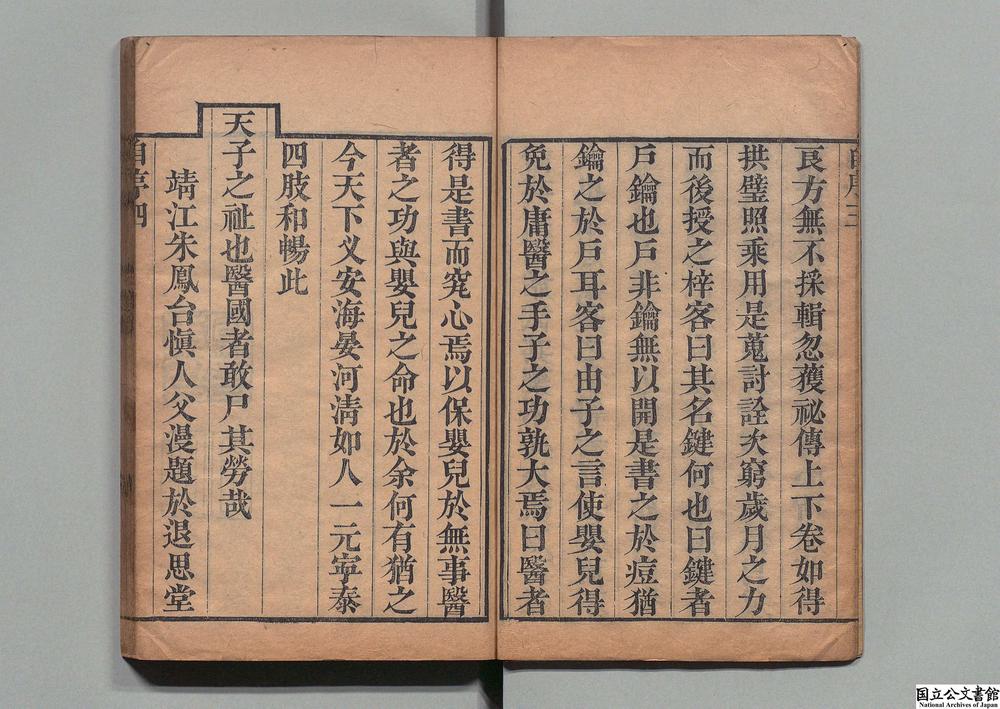 良方無不採輯忽獲祕傳上下卷如得
拱璧照乘用是蒐討詮次窮歲月之力
而後授之梓客曰其名鍵何也曰鍵者
戶鑰也戶非鑰無以開是書之於痘猶
鑰之於戶耳客曰由子之言使嬰兒得
免於庸醫之手子之功孰大焉曰醫者
得是書而究心焉以保嬰兒於無事醫
者之功與嬰兒之命也於余何有猶之
今天下乂安海晏河清如人一元寧泰
四肢和暢此
天子之祉也醫國者敢尸其勞哉
靖江朱鳳台慎人父漫題於退思堂
自序四
国立公文書館
National Archives of Japan